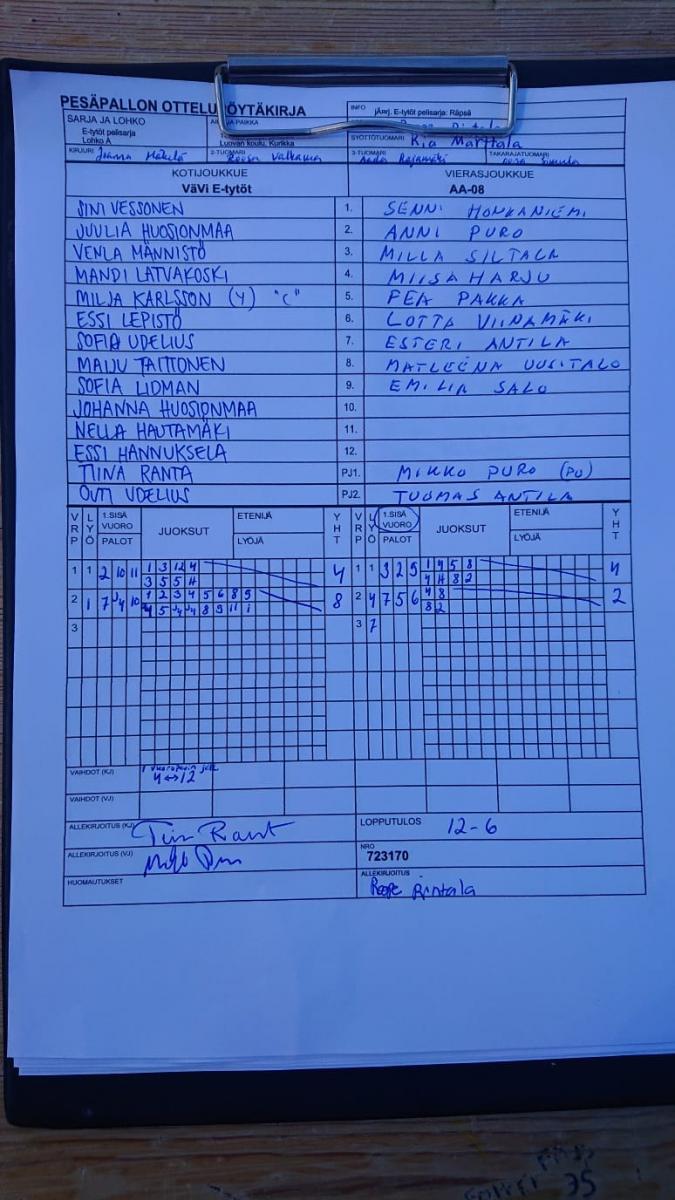 PESÄPALLON OTTELU ÖYTÄKIRJA
INFO jÄnrj. E-tytöt pelisarja: Räpsä
SARJA JA LOHKO
E-tytöt pelisarja
Lohko A
JA PAIKKA
Luovan koulu, Kurikka
SYÖTTÖTUOMARI Kia Marttala
KIRJURI Joanna Mäkelä
2-TUOMARI Roosa Valkama
3-TUOMARI Aada Rajamäki
TAKARAJATUOMARI
KOTIJOUKKUE
VäVi E-tytöt
VIERASJOUKKUE
AA-08
SINI VESSONEN 1. SENNI HONKANIEMI
JUULIA HUOSIONMAA 2. ANNI PURO
VENLA MÄNNISTÖ 3. MILLA SILTALA
MANDI LATVAKOSKI 4. MIISA HARJU
MILJA KARLSSON (Y) "C" 5. PEA PAKKA
ESSI LEPISTÖ 6. LOTTA VIINAMÄKI
SOFIA UDELIUS 7. ESTERI ANTILA
MAIJU TAITTONEN 8. MATLEENA UUSITALO
SOFIA LIDMAN 9. EMILIA SALO
JOHANNA HUOSIONMAA 10.
NELLA HAUTAMÄKI 11.
ESSI HANNUKSELA 12.
TIINA RANTA PJ1. MIKKO PURO (PU)
OUTI UDELIUS PJ2. TUOMAS ANTILA
VRP LYÖ 1.SISÄ VUORO PALOT JUOKSUT ETENIJÄ LYÖJÄ YHT VRP LYÖ 1.SISÄ VUORO PALOT JUOKSUT ETENIJÄ LYÖJÄ YHT
1 1 2 10 11 1 3 12 4 4 1 1 3 2 5 1 4 5 8 4
3 5 5 11 4 11 8 2
2 1 7 4 10 1 2 3 4 5 6 8 5 8 2 4 7 5 6 4 8 2
4 5 4 4 8 9 11 1 8 2
3 3 7
VAIHDOT (KJ) 4↔12
VAIHDOT (VJ)
ALLEKIRJOITUS (KJ) LOPPUTULOS 12-6
ALLEKIRJOITUS (VJ) NRO 723170
HUOMAUTUKSET ALLEKIRJOITUS Roope Rintala
35